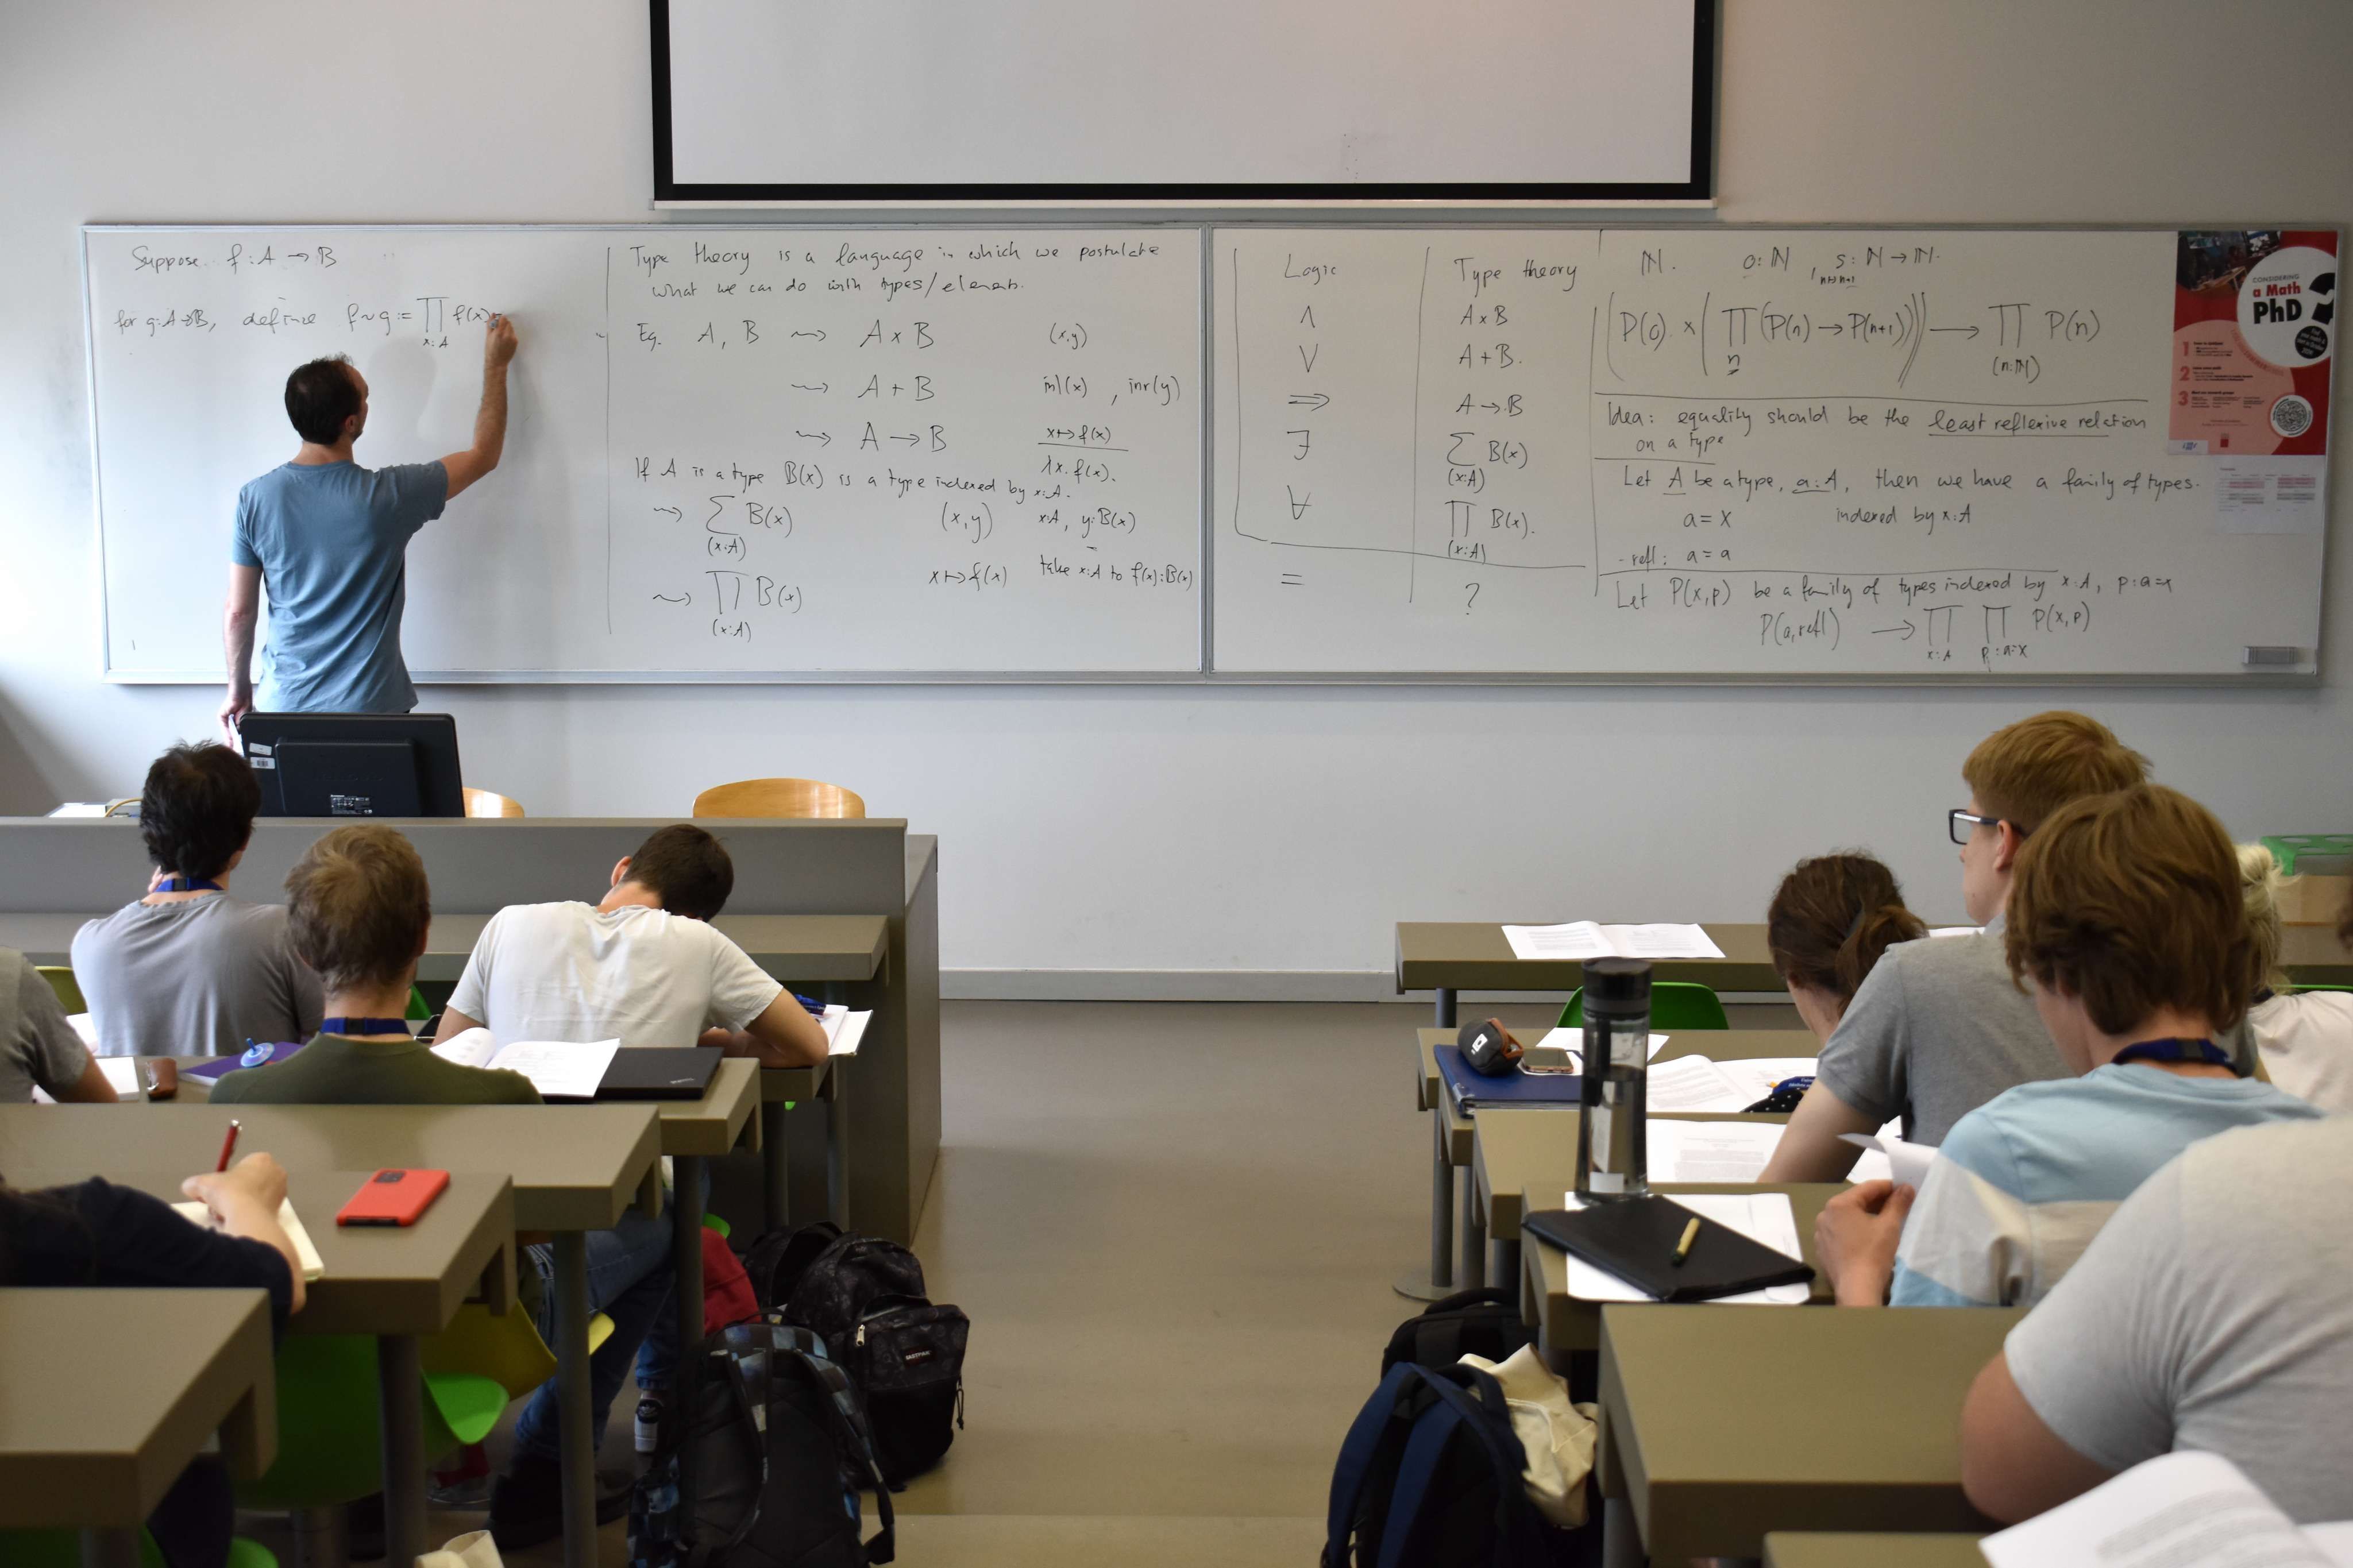 Suppose f : A → B
for g: A→B, define f ~ g := ∏ f(x) =
x:A
Type theory is a language in which we postulate
what we can do with types/elements.
Eg. A, B ⇝ A × B (x,y)
⇝ A + B inl(x) , inr(y)
⇝ A → B x ↦ f(x)
λx. f(x).
If A is a type B(x) is a type indexed by x:A.
⇝ ∑ B(x) (x,y) x:A, y:B(x)
(x:A)
⇝ ∏ B(x) x ↦ f(x) take x:A to f(x):B(x)
(x:A)
Logic Type theory
∧ A × B
∨ A + B.
⇒ A → B
∃ ∑ B(x)
(x:A)
∀ ∏ B(x).
(x:A)
= ?
ℕ. 0: ℕ , s: ℕ → ℕ.
n ↦ n+1
(P(0) × (∏ (P(n) → P(n+1)))) ⟶ ∏ P(n)
n (n:ℕ)
Idea: equality should be the least reflexive relation
on a type
Let A be a type, a:A, then we have a family of types.
a = x indexed by x:A
- refl: a = a
Let P(x,p) be a family of types indexed by x:A, p:a=x
P(a,refl) ⟶ ∏ ∏ P(x,p)
x:A p:a=x
CONSIDERING
a Math
PhD ?
1
2
3
EASTPAK